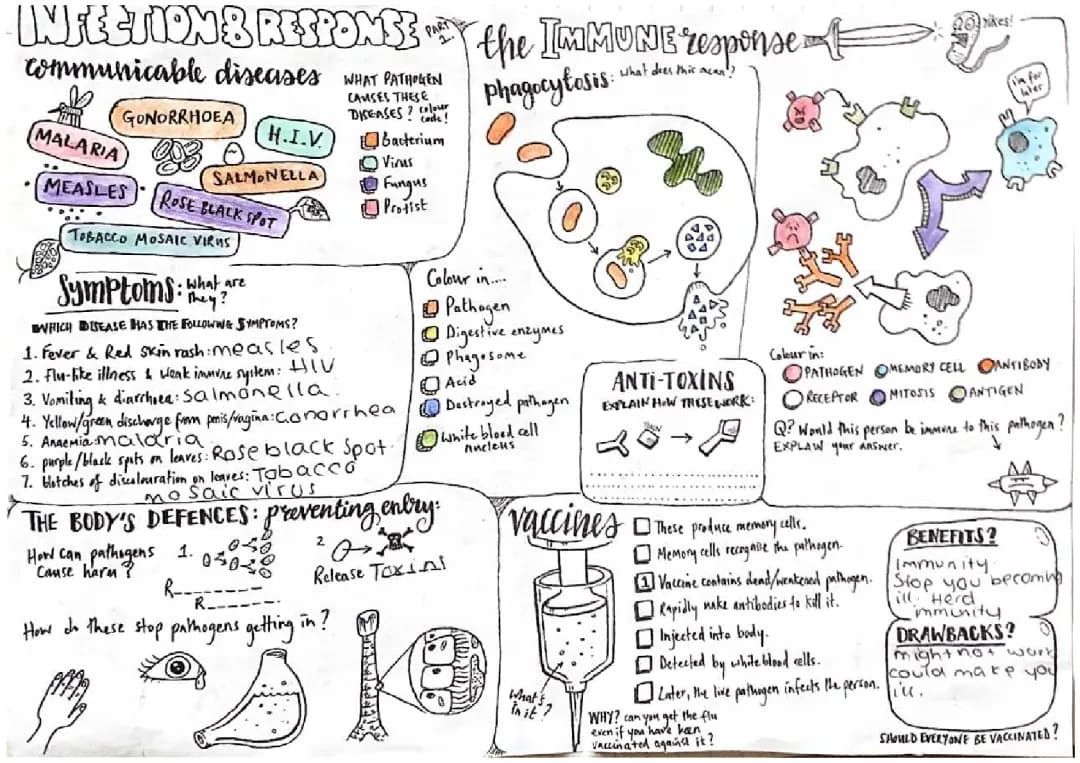 INFECTION & RESPONSE PART 1
communicable diseases
MALARIA
GONORRHOEA
H.I.V
MEASLES
SALMONELLA
ROSE BLACK SPOT
TOBACCO MOSAIC VIRUS
WHAT PATHOGEN
CAUSES THESE
DISEASES? colour
code!
Bacterium
Virus
Fungus
Protist
Symptoms: What are
they?
WHICH DISEASE HAS THE FOLLOWING SYMPTOMS?
1. Fever & Red skin rash: measles
2. Flu-like illness & weak immune system: HIV
3. Vomiting & diarrhoea: Salmonella.
4. Yellow/green discharge from penis/vagina: Gonorrhea
5. Anaemia: malaria
6. purple/black spots on leaves: Rose black spot.
7. blotches of discolouration on leaves: Tobacco
mosaic virus
THE BODY'S DEFENCES: preventing entry:
How can pathogens
cause harm?
1.
R
R
2
Release Toxins
How do these stop pathogens getting in?
the IMMUNE response
yikes!
phagocytosis: What does this mean?
Colour in....
Pathogen
Digestive enzymes
Phagosome
Acid
Destroyed pathogen
White blood cell
nucleus
ANTI-TOXINS
EXPLAIN HOW THESE WORK:
I'm for
later
Colour in:
PATHOGEN MEMORY CELL ANTIBODY
RECEPTOR MITOSIS ANTIGEN
Q? Would this person be immune to this pathogen?
EXPLAIN your ANSWER.
Vaccines
These produce memory cells.
Memory cells recognise the pathogen.
1 Vaccine contains dead/weakened pathogen.
Rapidly make antibodies to kill it.
Injected into body.
Detected by white blood cells.
Later, the live pathogen infects the person.
What's
in it?
WHY? can you get the flu
even if you have been
vaccinated against it?
BENEFITS?
Immunity.
Stop you becoming
ill. Herd
immunity
DRAWBACKS?
might not work
could make you
ill.
SHOULD EVERYONE BE VACCINATED?